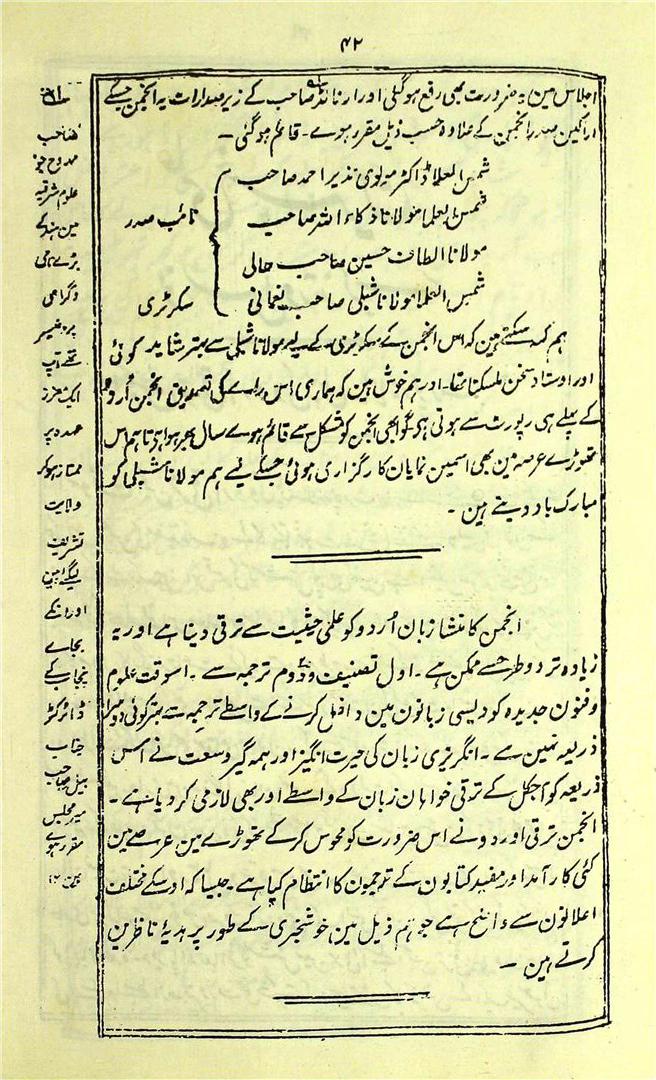 ۴۲
اجلاس مین یہ ضرورت بھی رفع ہوگئی اور ارنالڈ صاحب کے زیر صدارات یہ انجمن جسکے
اراکین صدر انجمن کے علاوہ حسب ذیل مقرر ہوے۔ قائم ہوگئی۔
شمس العلما ڈاکٹر مولوی نذیر احمد صاحب
شمس العلما مولانا ذکاء اللہ صاحب
نائب صدر
مولانا الطاف حسین صاحب حالی
شمس العلما مولانا شبلی صاحب نعمانی
سکرٹری
ہم کہہ سکتے ہین کہ اس انجمن کے سکرٹری کے لیے مولانا شبلی سے بہتر شاید کوئی
اور اوستاد سخن ملسکتا تھا۔ اور ہم خوش ہین کہ ہماری اس راے کی تصدیق انجمن اُردو
کے پہلے ہی رپورٹ سے ہوتی ہی گو ابھی انجمن کو مشکل سے قائم ہوے سال بھر ہوا ہی تاہم اس
تھوڑے عرصہ مین بھی اسمین نمایان کارگزاری ہوئی جسکے لیے ہم مولانا شبلی کو
مبارک باد دیتے ہین۔
انجمن کا منشا زبان اُردو کو علمی حیثیت سے ترقی دینا ہے اور یہ
زیادہ تر دو طرح سے ممکن ہے۔ اول تصنیف و دوم ترجمہ سے۔ اسوقت علوم
و فنون جدیدہ کو دیسی زبانون مین داخل کرنے کے واسطے ترجمہ سے بہتر کوئی دوسرا
ذریعہ نہین ہے۔ انگریزی زبان کی حیرت انگیز اور ہمہ گیر وسعت نے اس
ذریعہ کو آجکل کے ترقی خواہان زبان کے واسطے اور بھی لازمی کر دیا ہے۔
انجمن ترقی اوردو نے اس ضرورت کو محسوس کرکے تھوڑے ہین عرصے مین
کئی کارآمد اور مفید کتابون کے ترجمون کا انتظام کیا ہے۔ جیسا کہ اوسکے مختلف
اعلانون سے واضح ہے جو ہم ذیل مین خوشخبری کے طور پر ہدیۂ ناظرین
کرتے ہین۔
صاحب
ممدوح جو
علوم شرقیہ
مین ہند کے
بڑے حامی
پروفیسر
تھے اب
ایک معزز
عہدہ پر
ممتاز ہوکر
ولایت
تشریف
لیگئے ہین
اور انکے
بجاے
پنجاب کے
ڈائرکٹر
جناب
بیل صاحب
میر مجلس
مقرر ہوے